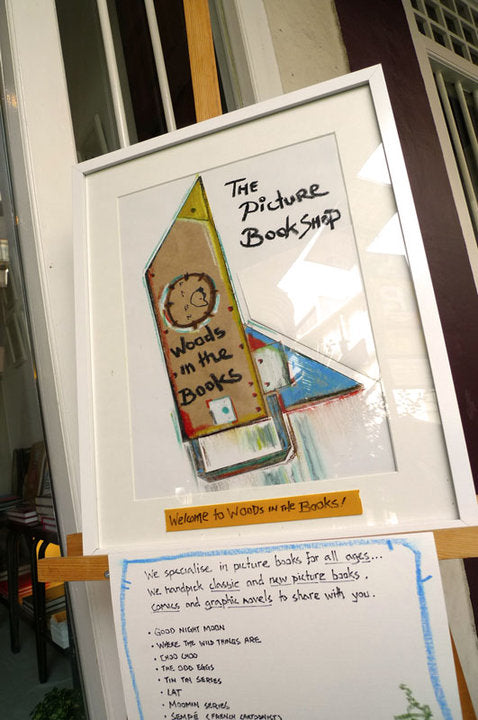 The
Picture
Book Shop
Woods
in the
Books
Welcome to Woods in the Books!
We specialise in picture books for all ages...
We handpick classic and new picture books,
comics and graphic novels to share with you.
• GOOD NIGHT MOON
• WHERE THE WILD THINGS ARE
• CHOO CHOO
• THE ODD EGGS
• TIN TIN SERIES
• LAT
• MOOMIN SERIES
• SEMPÉ (FRENCH CARTOONIST)